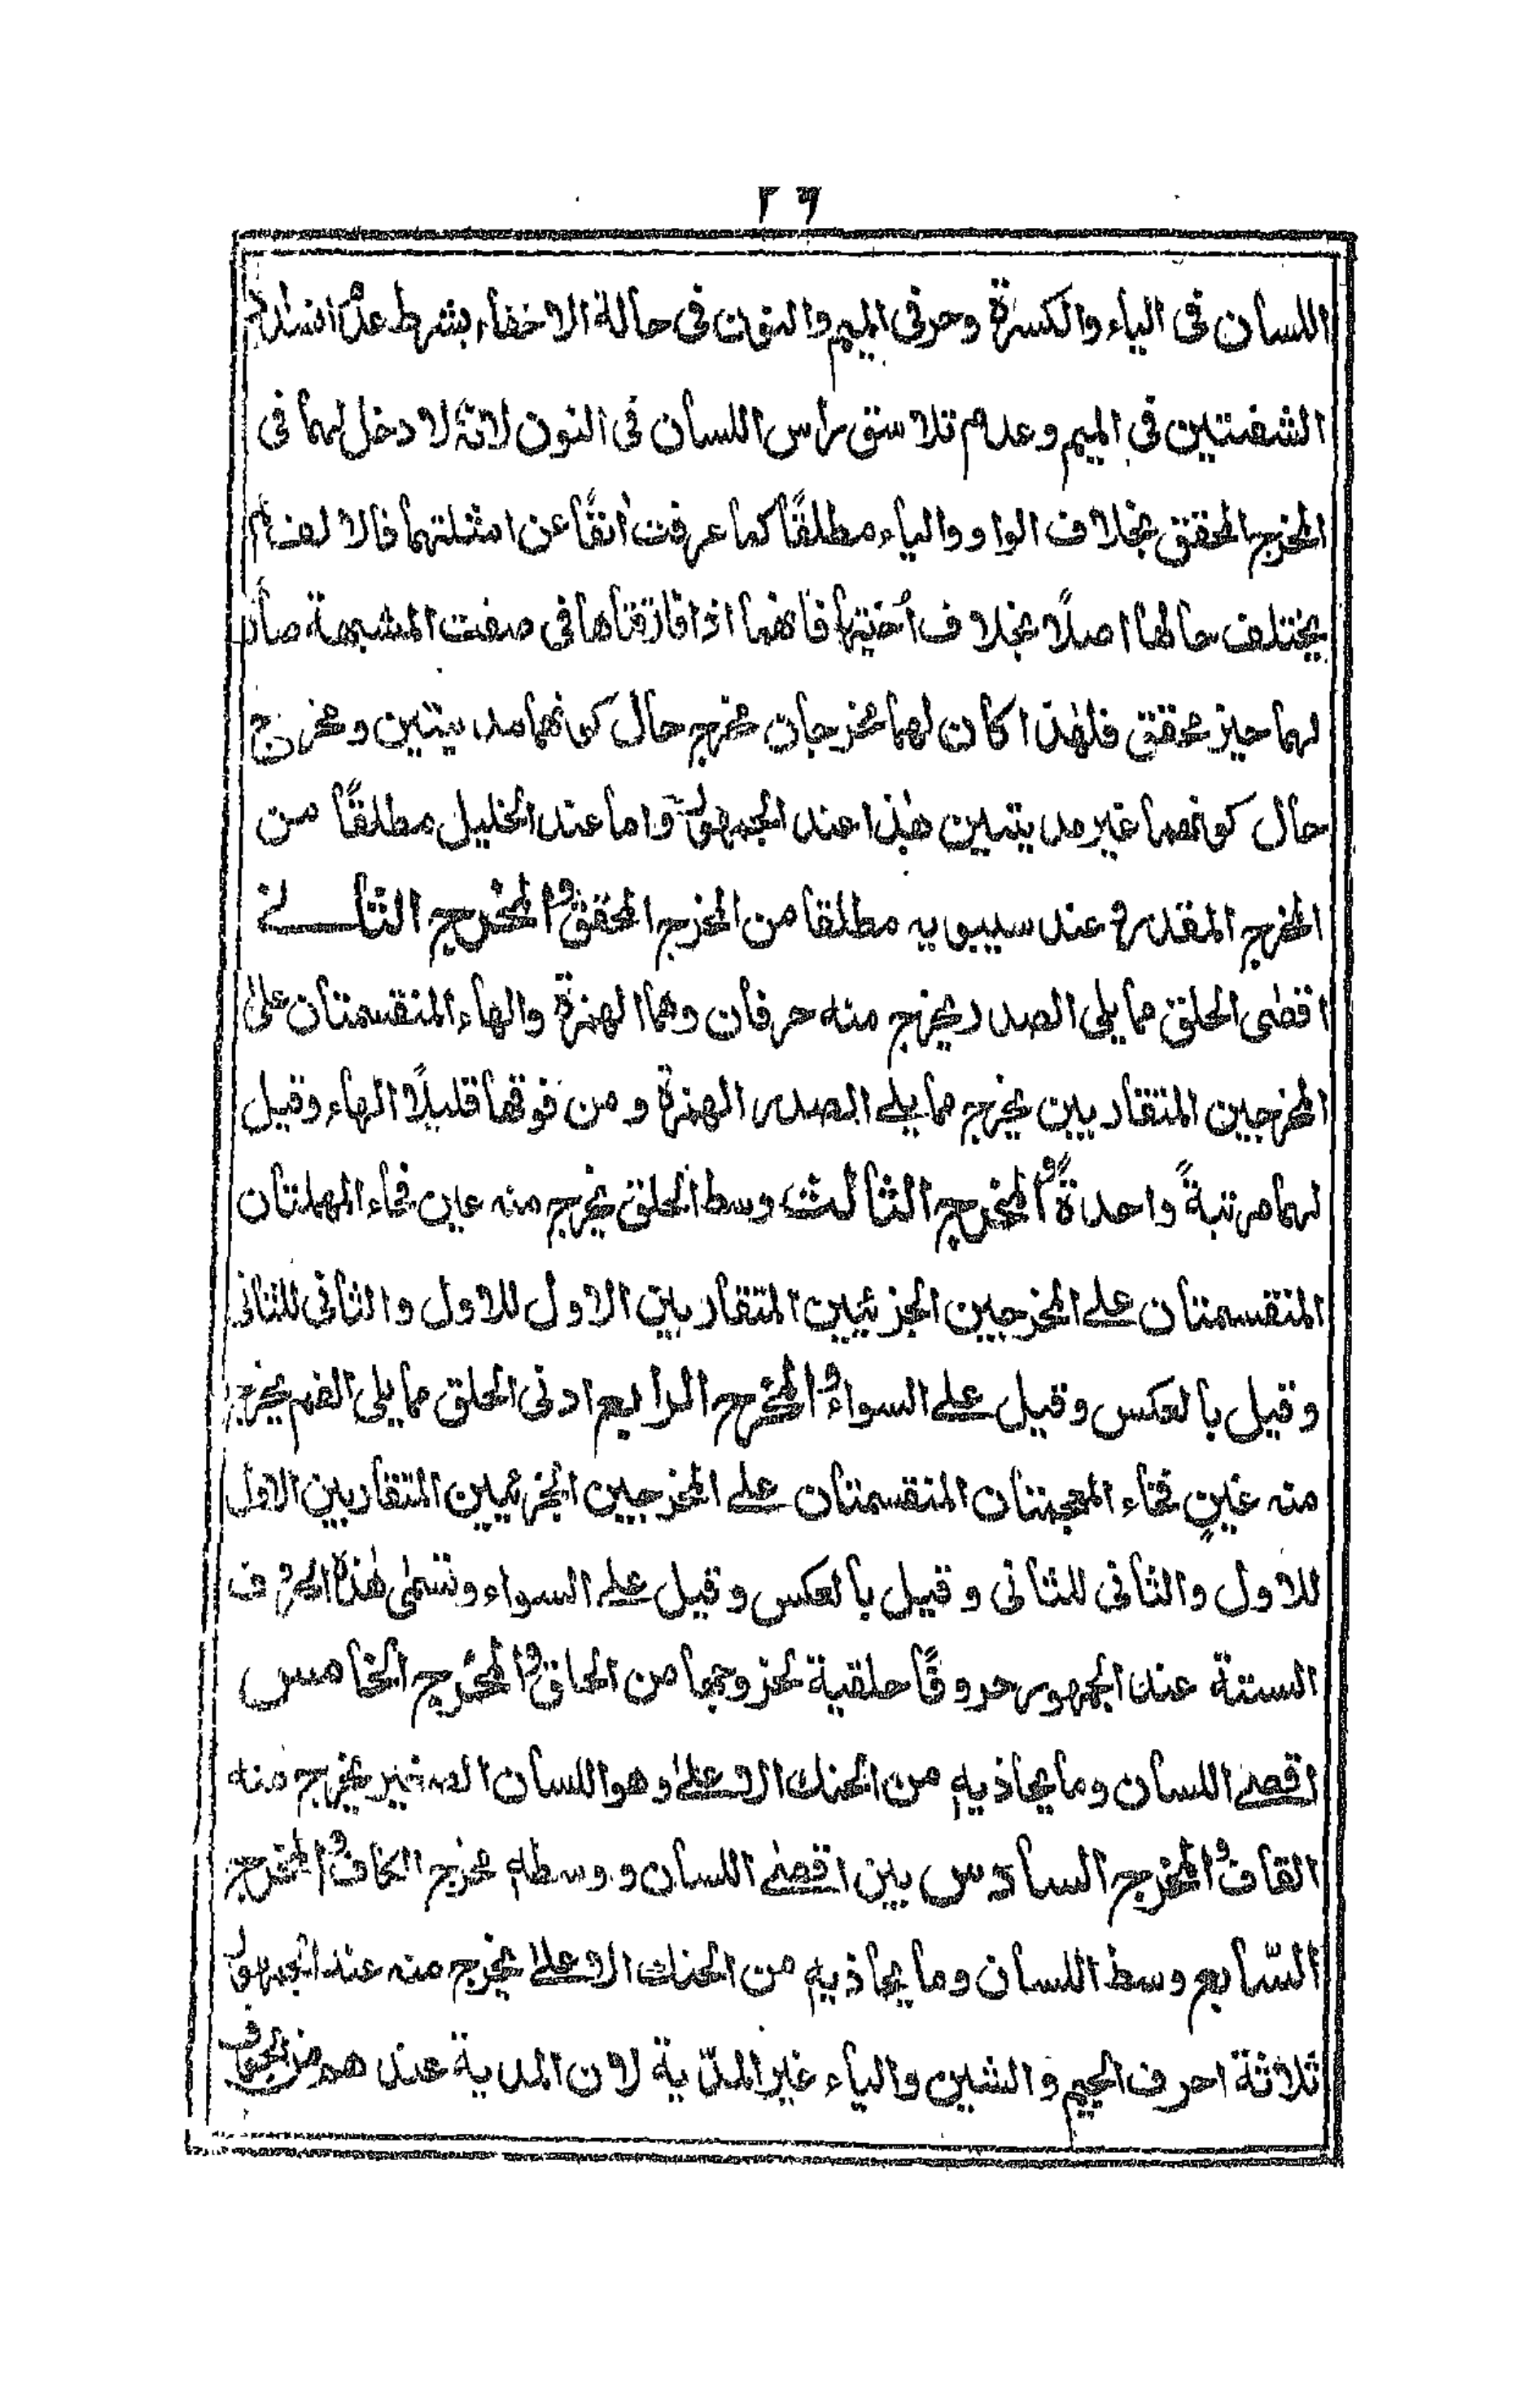 ٢٦
اللسان فى الياء والكسرة وحرفى الميم والنون فى حالة الاخفاء بشرط عدم انسداد
الشفتين فى الميم وعدم تلاسق راس اللسان فى النون لانهٗ لا دخل لهما فى
المخرج المحقق بخلاف الواو والياء مطلقًا كما عرفت اٰنفًا عن امثلتهما فالالف لم
يختلف حالها اصلًا بخلاف اُختيها فانهما اذا فارقتاها فى صفت المشبهة صار
لهما حيز محقق فلهٰذا كان لهما مخرجان مخرج حال كونهما مديتين ومخرج
حال كونهما غير مديتين هٰذا عند الجمهور واما عند الخليل مطلقًا من
المخرج المقدر وعند سيبويه مطلقا من المخرج المحقق والمخرج الثانے
اقصٰى الحلق مما يلى الصدر يخرج منه حرفان وهما الهمزة والهاء المنقسمتان علىٰ
المخرجين المتقاربين يخرج مما يلے الصدر الهمزة ومن فوقها قليلًا الهاء وقيل
لهما مرتبةً واحدةً والمخرج الثالث وسط الحلق يخرج منه عين فحاء المهملتان
المنقسمتان علے المخرجين الجزئيين المتقاربين الاول للاول والثانى للثانى
وقيل بالعكس وقيل علے السواء والمخرج الرابع ادنى الحلق مما يلى الفم يخرج
منه غينٍ فخاء المعجمتان المنقسمتان علے المخرجين الجزئيين المتقاربين الاول
للاول والثانى للثانى وقيل بالعكس وقيل علے السواء وتسمٰى هٰذه الحروف
الستة عند الجمهور حروفًا حلقية لخروجها من الحلق والمخرج الخامس
اقصے اللسان وما يحاذيهِ من الحنك الاعلےٰ وهو اللسان الصغير يخرج منه
القاف والمخرج السادس بين اقصےٰ اللسان ووسطهٖ مخرج الكاف والمخرج
السّابع وسط اللسان وما يحاذيهِ من الحنك الاعلےٰ يخرج منه عند الجمهور
ثلاثة احرف الجيم والشين والياء غير المدّية لان المدية عندهم من الجوف